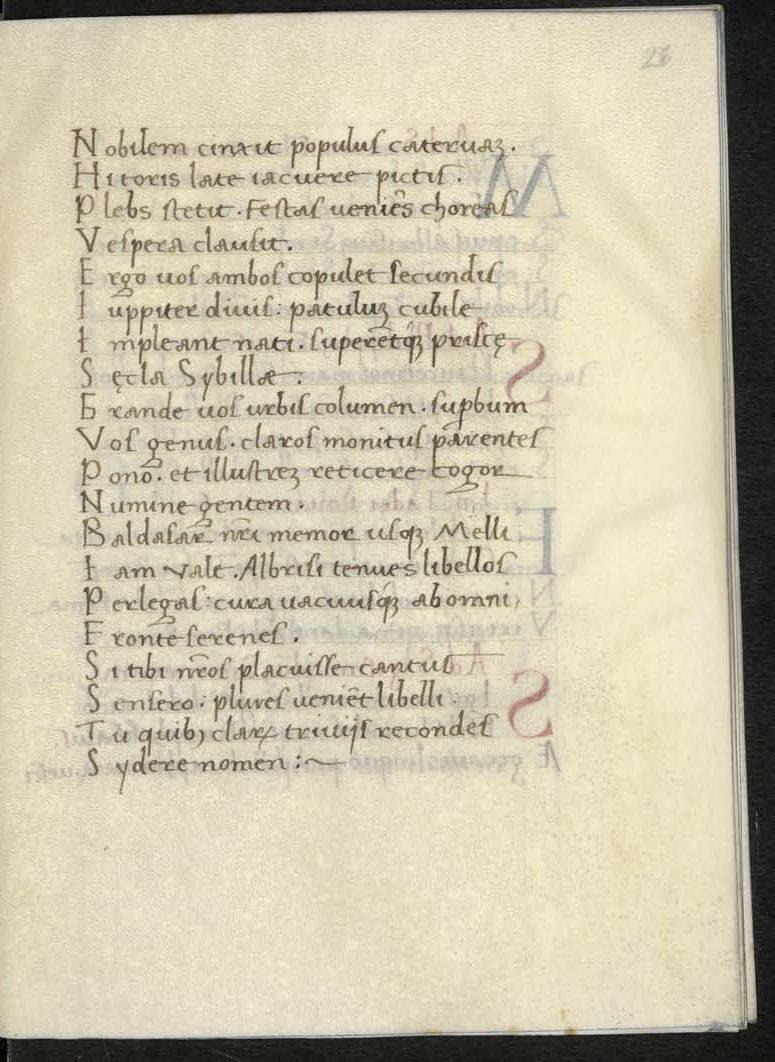 28
Nobilem cinxit populus cateruaꝫ.
Hi toris late iacuere pictis.
Plebs stetit. Festas ueniẽs choreas
Vespera clausit.
Ergo uos ambos copulet secundis
Iuppiter diuis: patuluꝫ cubile
Impleant nati. superẽtqꝫ priscę
Sęcla Sybillæ.
Grande uos urbis columen. supbum
Vos genus. claros monitus parentes
Pono. et illustreꝫ reticere cogor
Numine gentem.
Baldasar nr̃i memor usqꝫ Melli
Iam vale. Albrisi tenues libellos
Perlegas: cura uacuusqꝫ ab omni,
Fronte serenes.
Si tibi nr̃os placuisse cantus
Sensero: plures ueniẽt libelli:
Tu quibꝫ claꝝ triuijs recondes
Sydere nomen :~